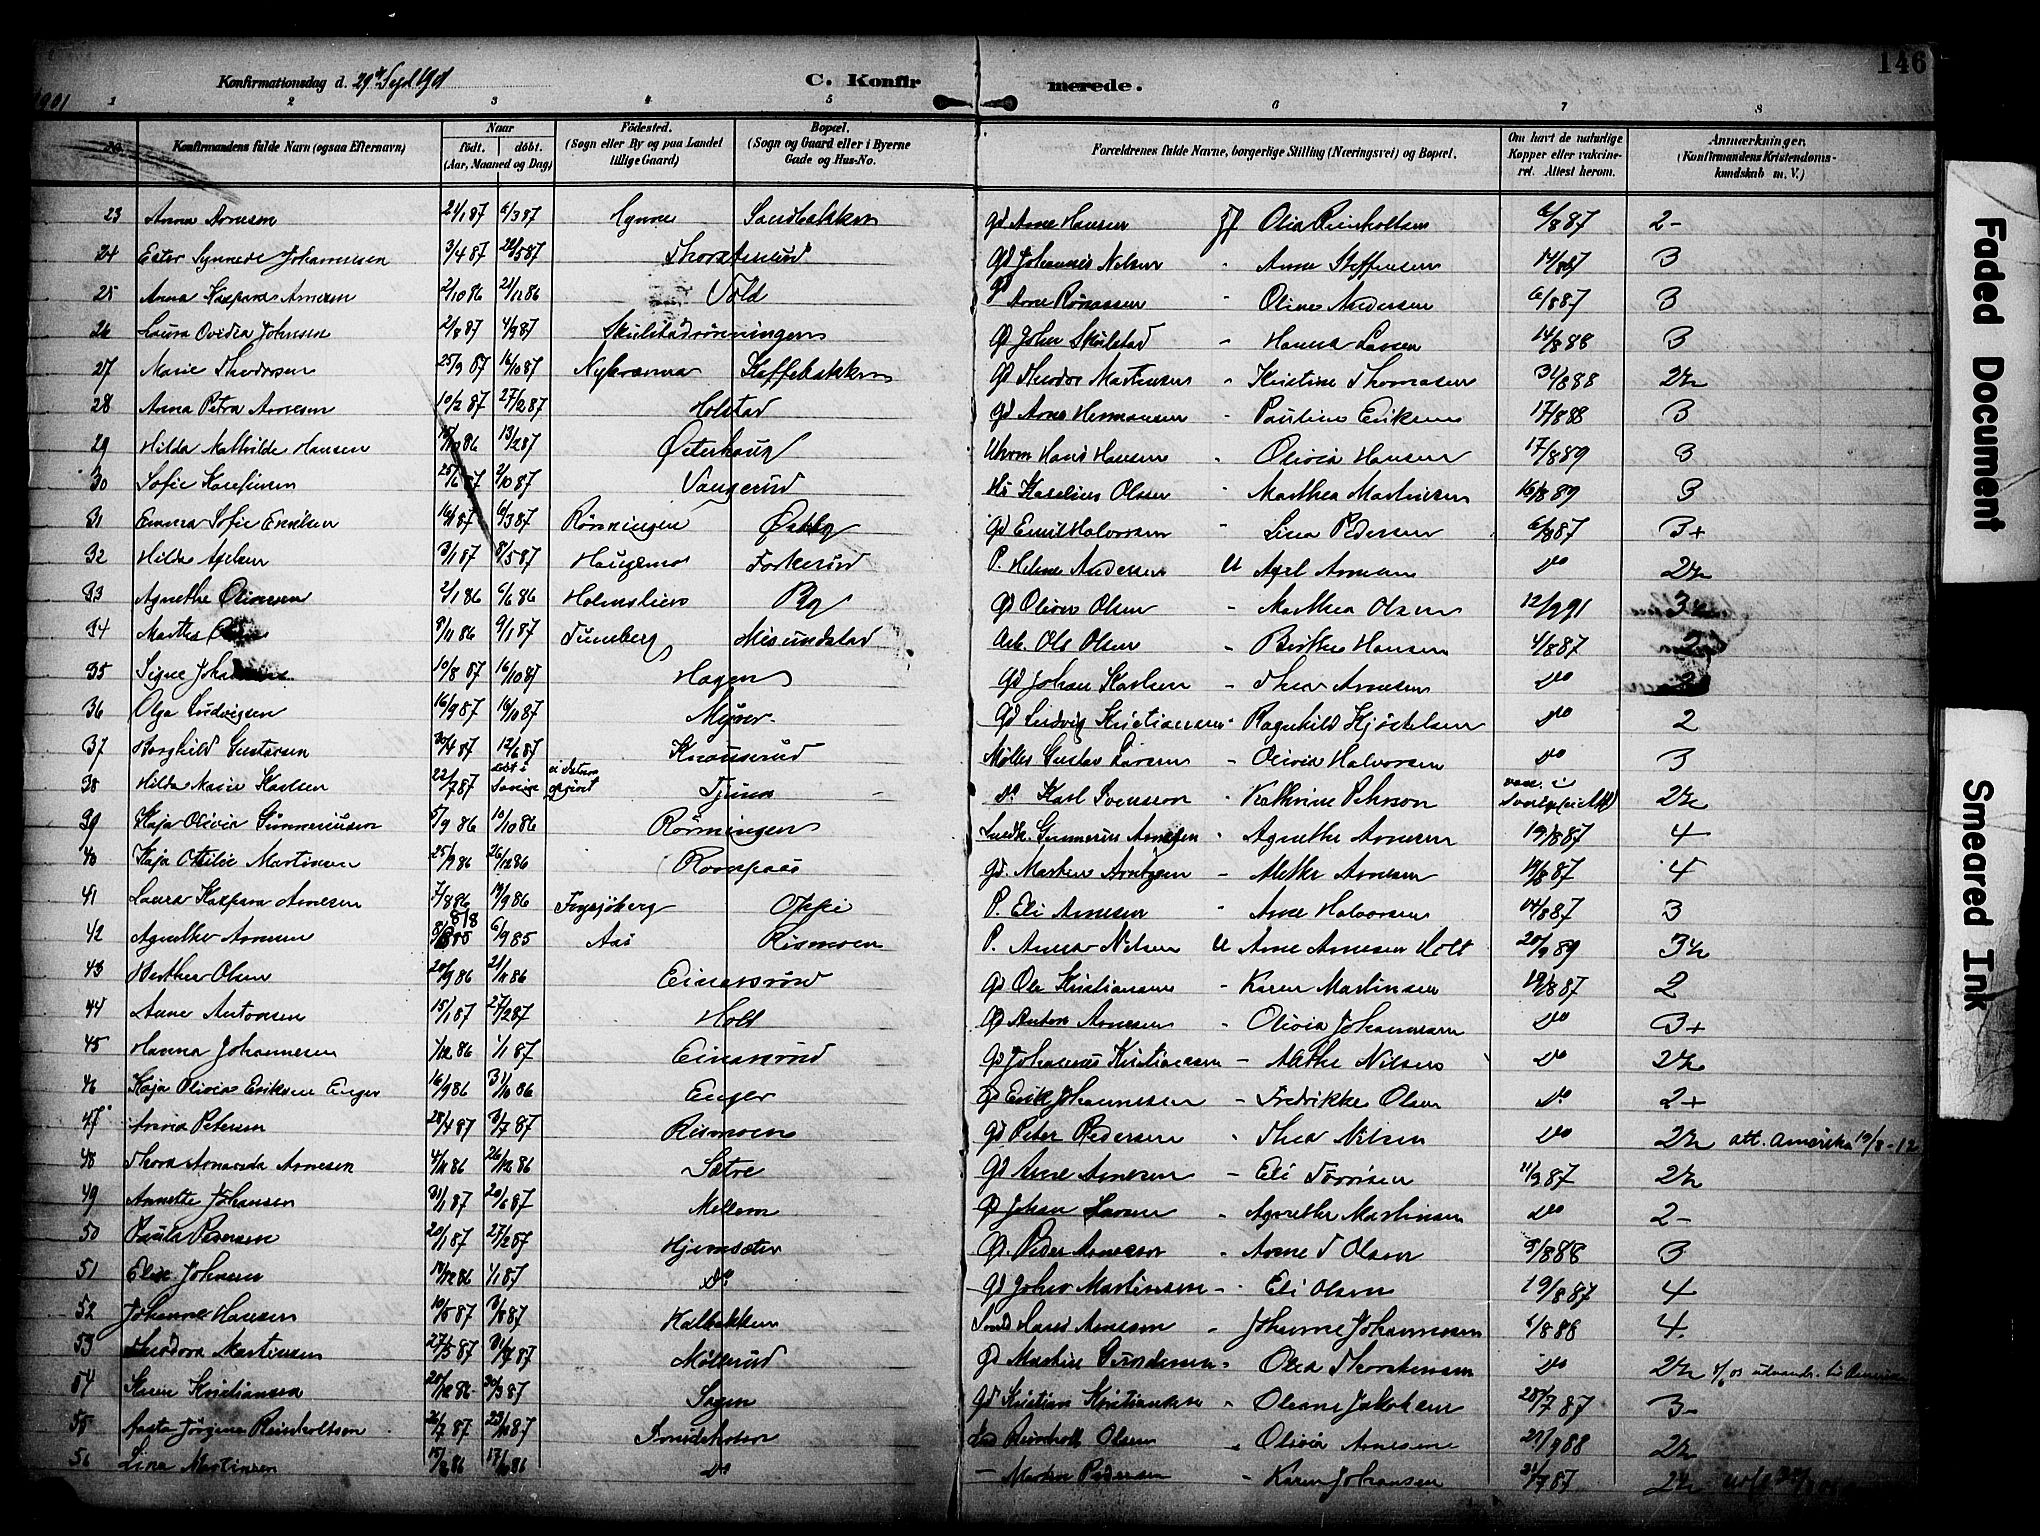 146
1901 Konfirmationsdag d. 29de Septbr 1901 C. Konfirmerede.
1 2 3 4 5 6 7 8
No. Konfirmandens fulde Navn (ogsaa Efternavn) Naar født. døbt. (Aar, Maaned og Dag) Fødested. (Sogn eller By og paa Landet tillige Gaard) Bopæl. (Sogn og Gaard eller i Byerne Gade og Hus-No. Forældrenes fulde Navne, borgerlige Stilling (Næringsvei) og Bopæl. Om havt de naturlige Kopper eller vakcineret. Attest herom. Anmærkninger. (Konfirmandens Kristendomskundskab m. V.)
23 Anna Arnesen 21/1 87 6/3 87 Hynne Sandbakken Gd Arne Hansen Olia Reinholtsen 6/8 87 2-
24 Ester Synnøve Johannesen 3/4 87 22/5 87 Thorsterud Gd Johannes Nelsen " Anne Steffensen 3
25 Anna Kaspara Arnesen 2/10 86 21/11 86 Vold Arne " Oline Andersen 6/8 87 3
26 Laura Ovidia Johnsen 2/8 87 4/9 87 Skulstadrønningen Gd John Skulstad " Hanna Larsen 14/8 88 3
27 Marie Theodorsen 25/9 87 16/10 87 Kaffebakken Gd Theodor Martinsen " Kristine Thomasen 31/8 88 2½
28 Anna Petra Arnesen 10/2 87 27/2 87 Holstad Gd Arne Hermansen " Pauline Eriksen 17/8 88 3
29 Hilda Mathilde Hansen 13/2 87 Østerhaug Hans Hansen " Olivia Hansen 17/8 89 3
30 Sofie Karelinsen 25/6 87 2/10 87 Vangerud Hs Karelius Olsen " Marthea Martinsen 16/8 89 3
31 Emma Sofie Emilsen 16/1 87 6/3 87 Rønningen Østby Gd Emil Halvorsen " Lina Pedersen 6/8 87 3+
32 Hilda Axelsen 3/1 87 8/5 87 Haugemo Forkerud P. Helene Andersen U Axel Arnesen do 2½
33 Agnethe Oliversen 2/1 86 6/6 86 Holmslien By Gd Oliver Olsen " Marthea Olsen 12/9 91 3½
34 Marthea 8/11 86 9/1 87 Tunsberg Misundstad Arb. Ole Olsen " Berthe Hansen 4/8 87 2
35 Signe 10/8 87 16/10 87 Hagen Gd Johan Karlsen - Thea Arnesen do
36 Olga Ludvigsen 16/9 87 16/10 87 Myrer Gd Ludvig Kristiansen " Ragnhild Kjøstelsen do 2
37 Borghild Gustavsen 30/4 87 12/6 87 Knauserud Møller Gustav Larsen - Olivia Halvorsen do 3
38 Hilda Marie Karlsen 22/7 87 døbt i Sverige ei datum opgivet Tjura do Karl Svensson " Kathrine Pehrson vac. i 2½
39 Kaja Olivia Gunneriusen 5/9 86 10/10 86 Rønningen Gunnerius Arnesen " Agnethe Arnesen 19/8 87 4
40 Kaja Otilie Martinsen 25/9 86 26/12 86 Gd. Martin Arntzen - Methe Arnesen 19/8 87 4
41 Laura Kaspara Arnesen 7/8 86 19/9 86 Frysjøberg Oppi P. Eli Arnesen " Arne Halvorsen 14/8 87 3
42 Agnethe Arnesen 8/8 85 6/9 85 Aas Rismoen P. Nilsen U Arne Arnesen Holt 20/9 89 3½
43 Berthea Olsen 20/9 86 21/11 86 Einarsrud Gd Ole Kristiansen " Karen Martinsen 19/8 87 2
44 Anne Antonsen 15/1 87 27/2 87 Holt Gd Anton Arnesen " Olivia Johannesen do 3+
45 Hanna Johannesen 1/12 86 1/1 87 Einarsrud Gd Johannes Kristiansen - Mathe Nilsen do 2½
46 Kaja Olivia Eriksen Enger 16/9 86 31/10 86 Enger Gd Erik Johannesen - Fredrikke Olsen do 2+
47 Petersen 28/4 87 3/7 87 Rismoen Gd Peter Pedersen " Thea Nilsen do 2½ att. Amerika 19/8-12
48 Thora Amanda Arnesen 4/11 86 26/12 86 Sætre Gd Arne Arnesen - Eli 11/9 87 2½
49 Annette Johansen 31/1 87 20/6 87 Mellem Gd Johan Larsen - Agnethe Martinsen do 2-
50 Paula Pedersen 20/1 87 27/2 87 Hjemsæter Gd. Peder Arnesen " Anne T Olsen 5/8 88 3
51 Elise Johnsen 14/12 86 1/1 87 do Gd John Martinsen - Eli Olsen 19/8 87 4
52 Johanne Hansen 10/5 87 3/7 87 Kalbakken Hans Arnesen " Johanne Johannesen 6/8 88 4
53 Theodora Martinsen 27/5 87 31/7 87 Møllerud Gd Martin Gundersen - Olea Thorstensen do 2½ udvandr. til Amerika
54 Karen Kristiansen 28/12 86 20/3 87 Sagen Gd Kristian Kristiansen " Oleane Jakobsen 28/7 87 3-
55 Aasta Jørgine Reinholtsen 26/7 87 23/10 87 Reinholt Olsen " Olivia Arnesen 21/9 88 2½
56 Lina Martinsen 15/2 86 17/1 86 do - Martin Pedersen " Karen Johansen 21/7 87 2½
Faded Document
Smeared Ink